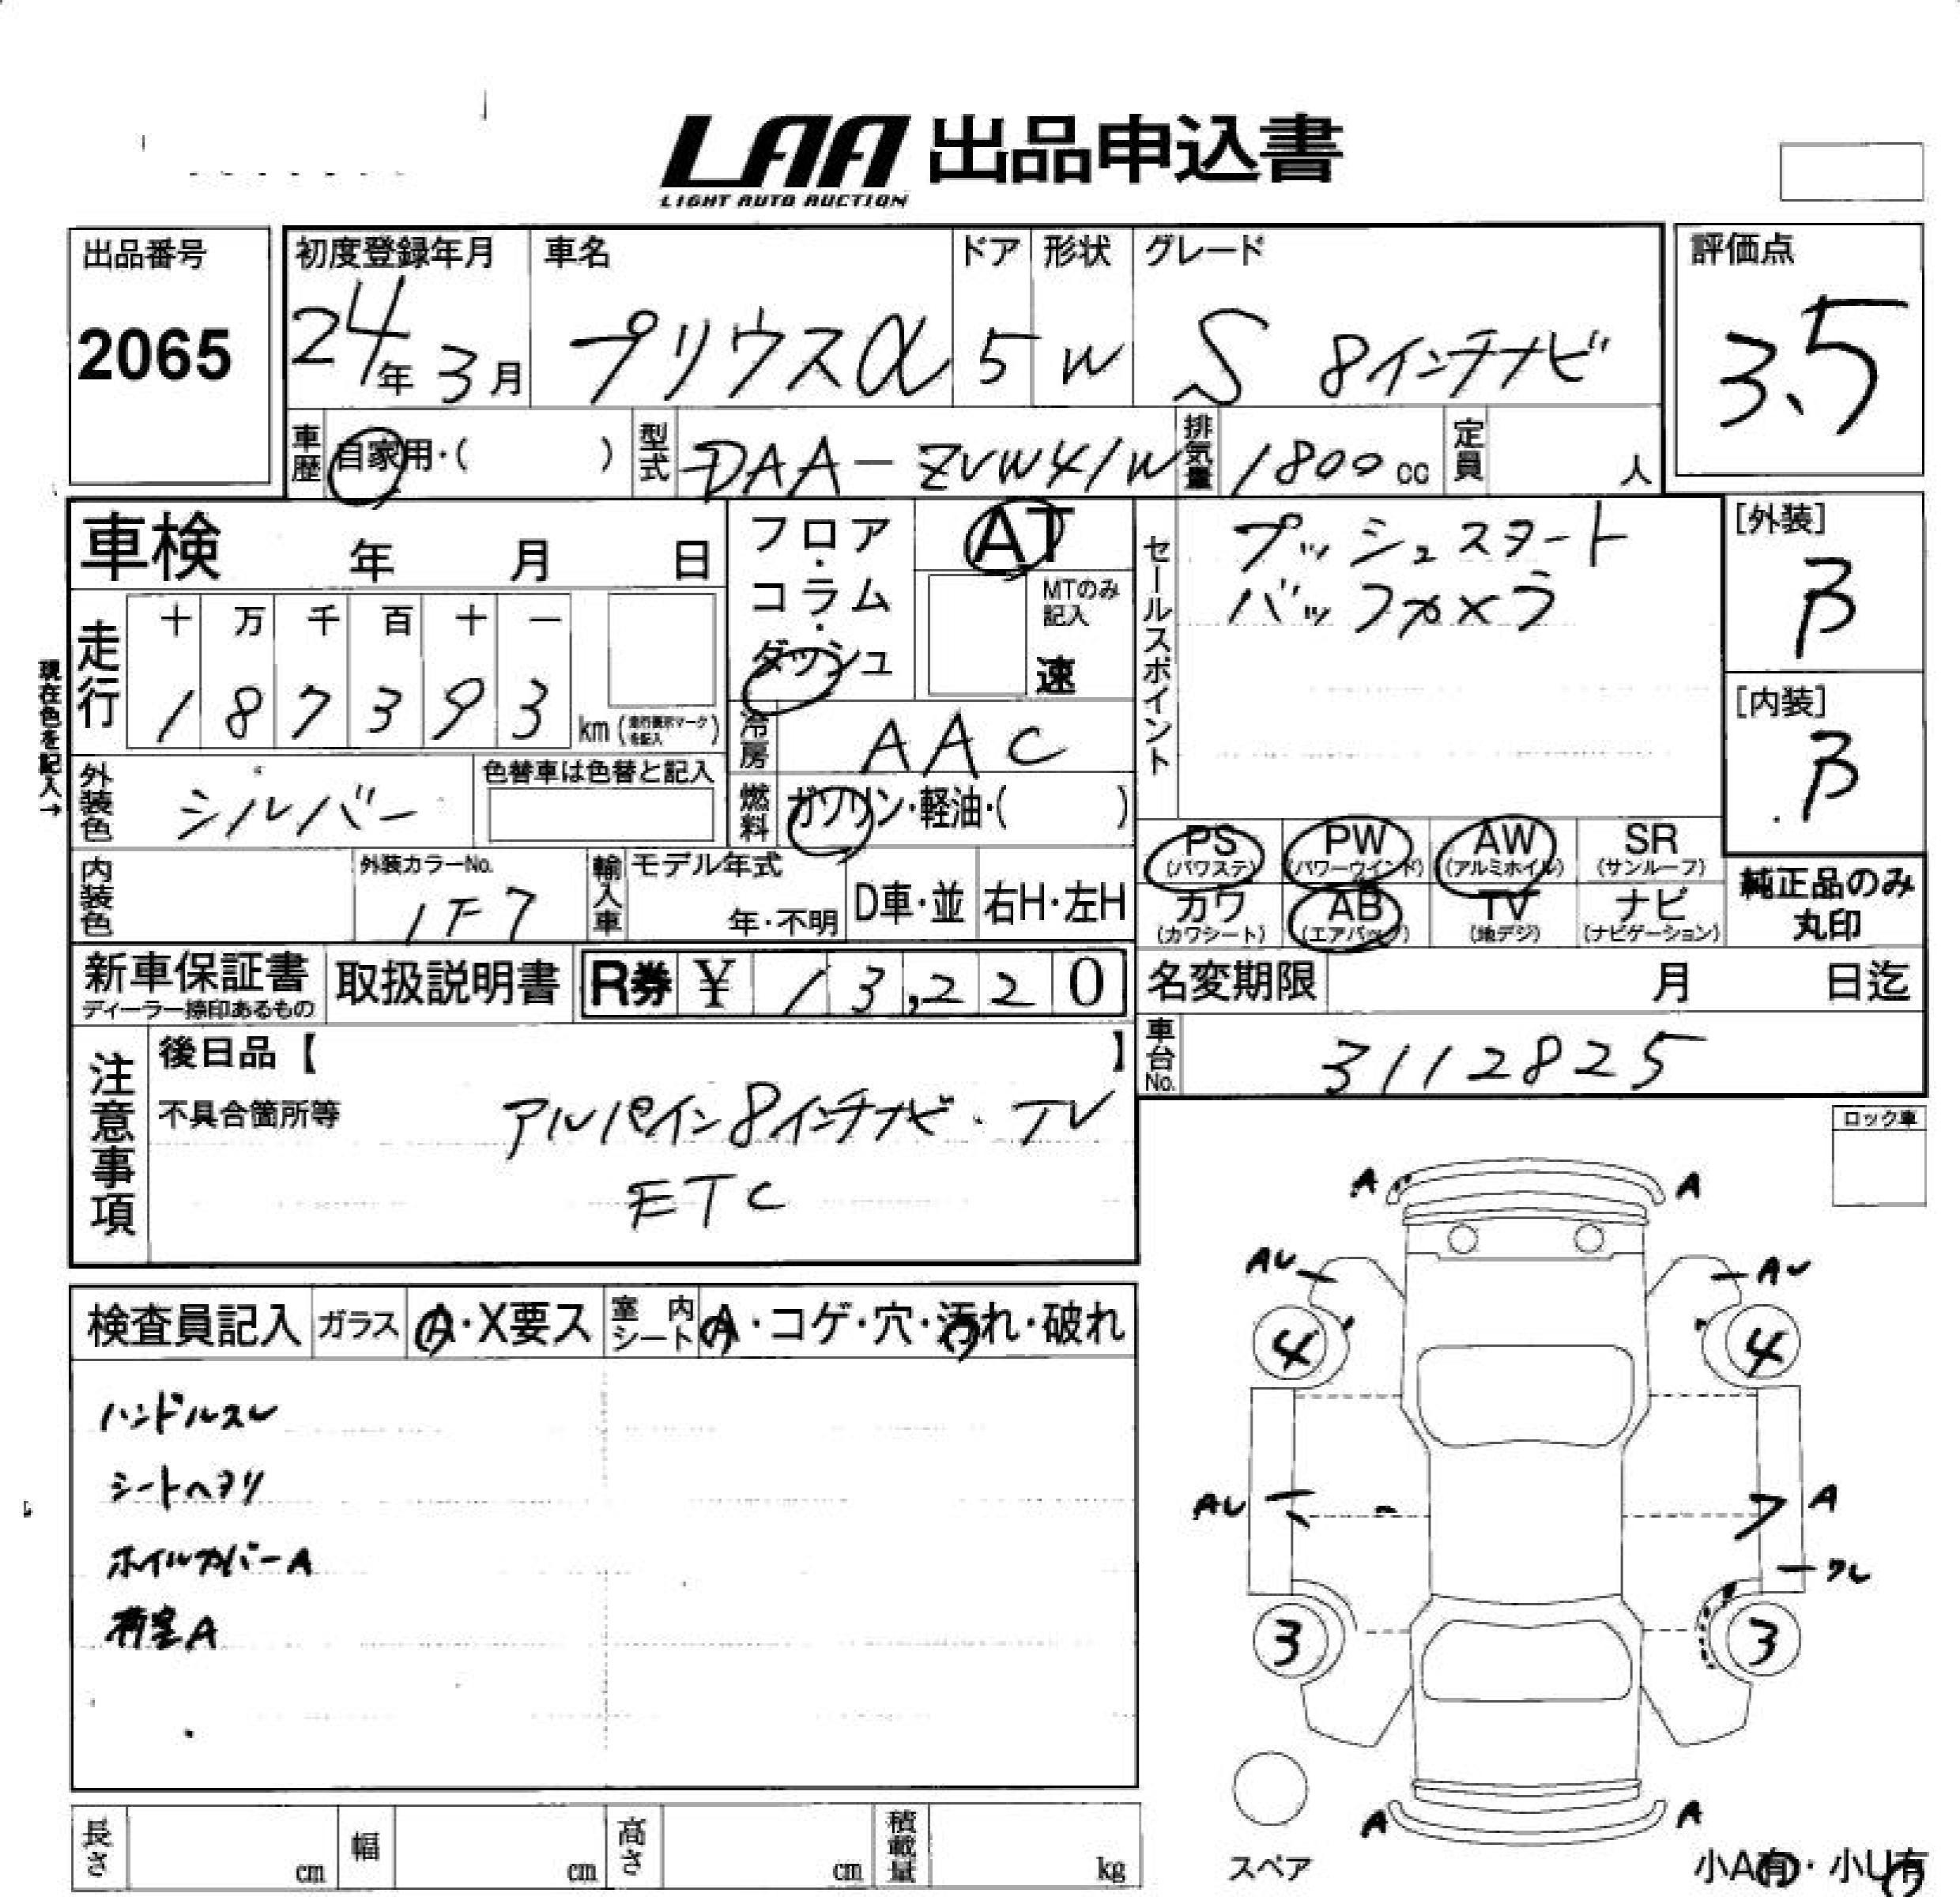 LAA 出品申込書
LIGHT AUTO AUCTION
出品番号
2065
初度登録年月
24年3月
車名
プリウスα
ドア
5
形状
W
グレード
S 8インチナビ
評価点
3.5
車歴
自家用・( )
型式
DAA-ZVW41W
排気量
1800cc
定員
人
車検 年 月 日
フロア・コラム・ダッシュ
AT
MTのみ記入
速
セールスポイント
プッシュスタート
バックカメラ
[外装]
B
[内装]
B
現在色を記入→
走行
十 万 千 百 十 一
1 8 7 3 9 3
km(走行表示マークを記入)
冷房
AAC
外装色
シルバー
色替車は色替と記入
燃料
ガソリン・軽油・( )
PS (パワステ)
PW (パワーウインド)
AW (アルミホイル)
SR (サンルーフ)
カワ (カワシート)
AB (エアバッグ)
TV (地デジ)
ナビ (ナビゲーション)
純正品のみ丸印
内装色
外装カラーNo.
1F7
輸入車
モデル年式
年・不明
D車・並
右H・左H
新車保証書
ディーラー捺印あるもの
取扱説明書
R券 ¥ 13,220
名変期限 月 日迄
車台No.
3112825
注意事項
後日品【 】
不具合箇所等
アルパイン8インチナビ・TV
ETC
ロック車
検査員記入
ガラス
A・X要ス
室内シート
A・コゲ・穴・汚れ・破れ
ハンドルスレ
シートヘタリ
ホイルカバーA
荷室A
A A
AU AU
4 4
AU A
ワレ
3 3
A A
スペア
小A有・小U有
長さ cm
幅 cm
高さ cm
積載量 kg